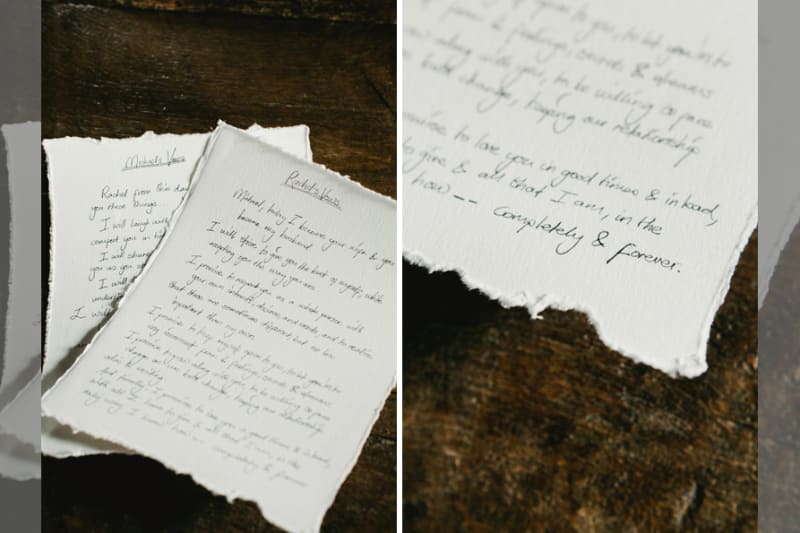 Michael's Vows
Rachel from this day
you these things.
I will laugh with
comfort you in ti
I will share
you as you
I will
underst
I will
Rachel's Vows
Michael, today I become your wife & you
become my husband.
I will strive to give you the best of myself, while
accepting you the way you are.
I promise to respect you as a whole person with
your own interests, desires, and needs, and to realize
that those are sometimes different, but no less
important than my own.
I promise to keep myself open to you, to let you in to
my innermost fears & feelings, secrets & dreams.
I promise to grow along with you, to be willing to face
change as we both change, keeping our relationship
alive & exciting.
And finally, I promise to love you in good times & in bad,
with all I have to give & all that I am, in the
only way I know how -- completely & forever.
open to you, to let you in to
fears & feelings, secrets & dreams
grow along with you, to be willing to face
both change, keeping our relationship
promise to love you in good times & in bad,
to give & all that I am, in the
how -- completely & forever.